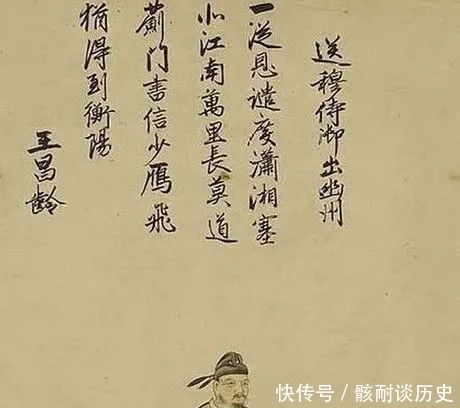 送穆侍御出幽州
一從恩譴度瀟湘塞
北江南萬里長莫道
薊门書信少雁飛
猶得到衡陽
王昌齡
快传号/骸耐谈历史